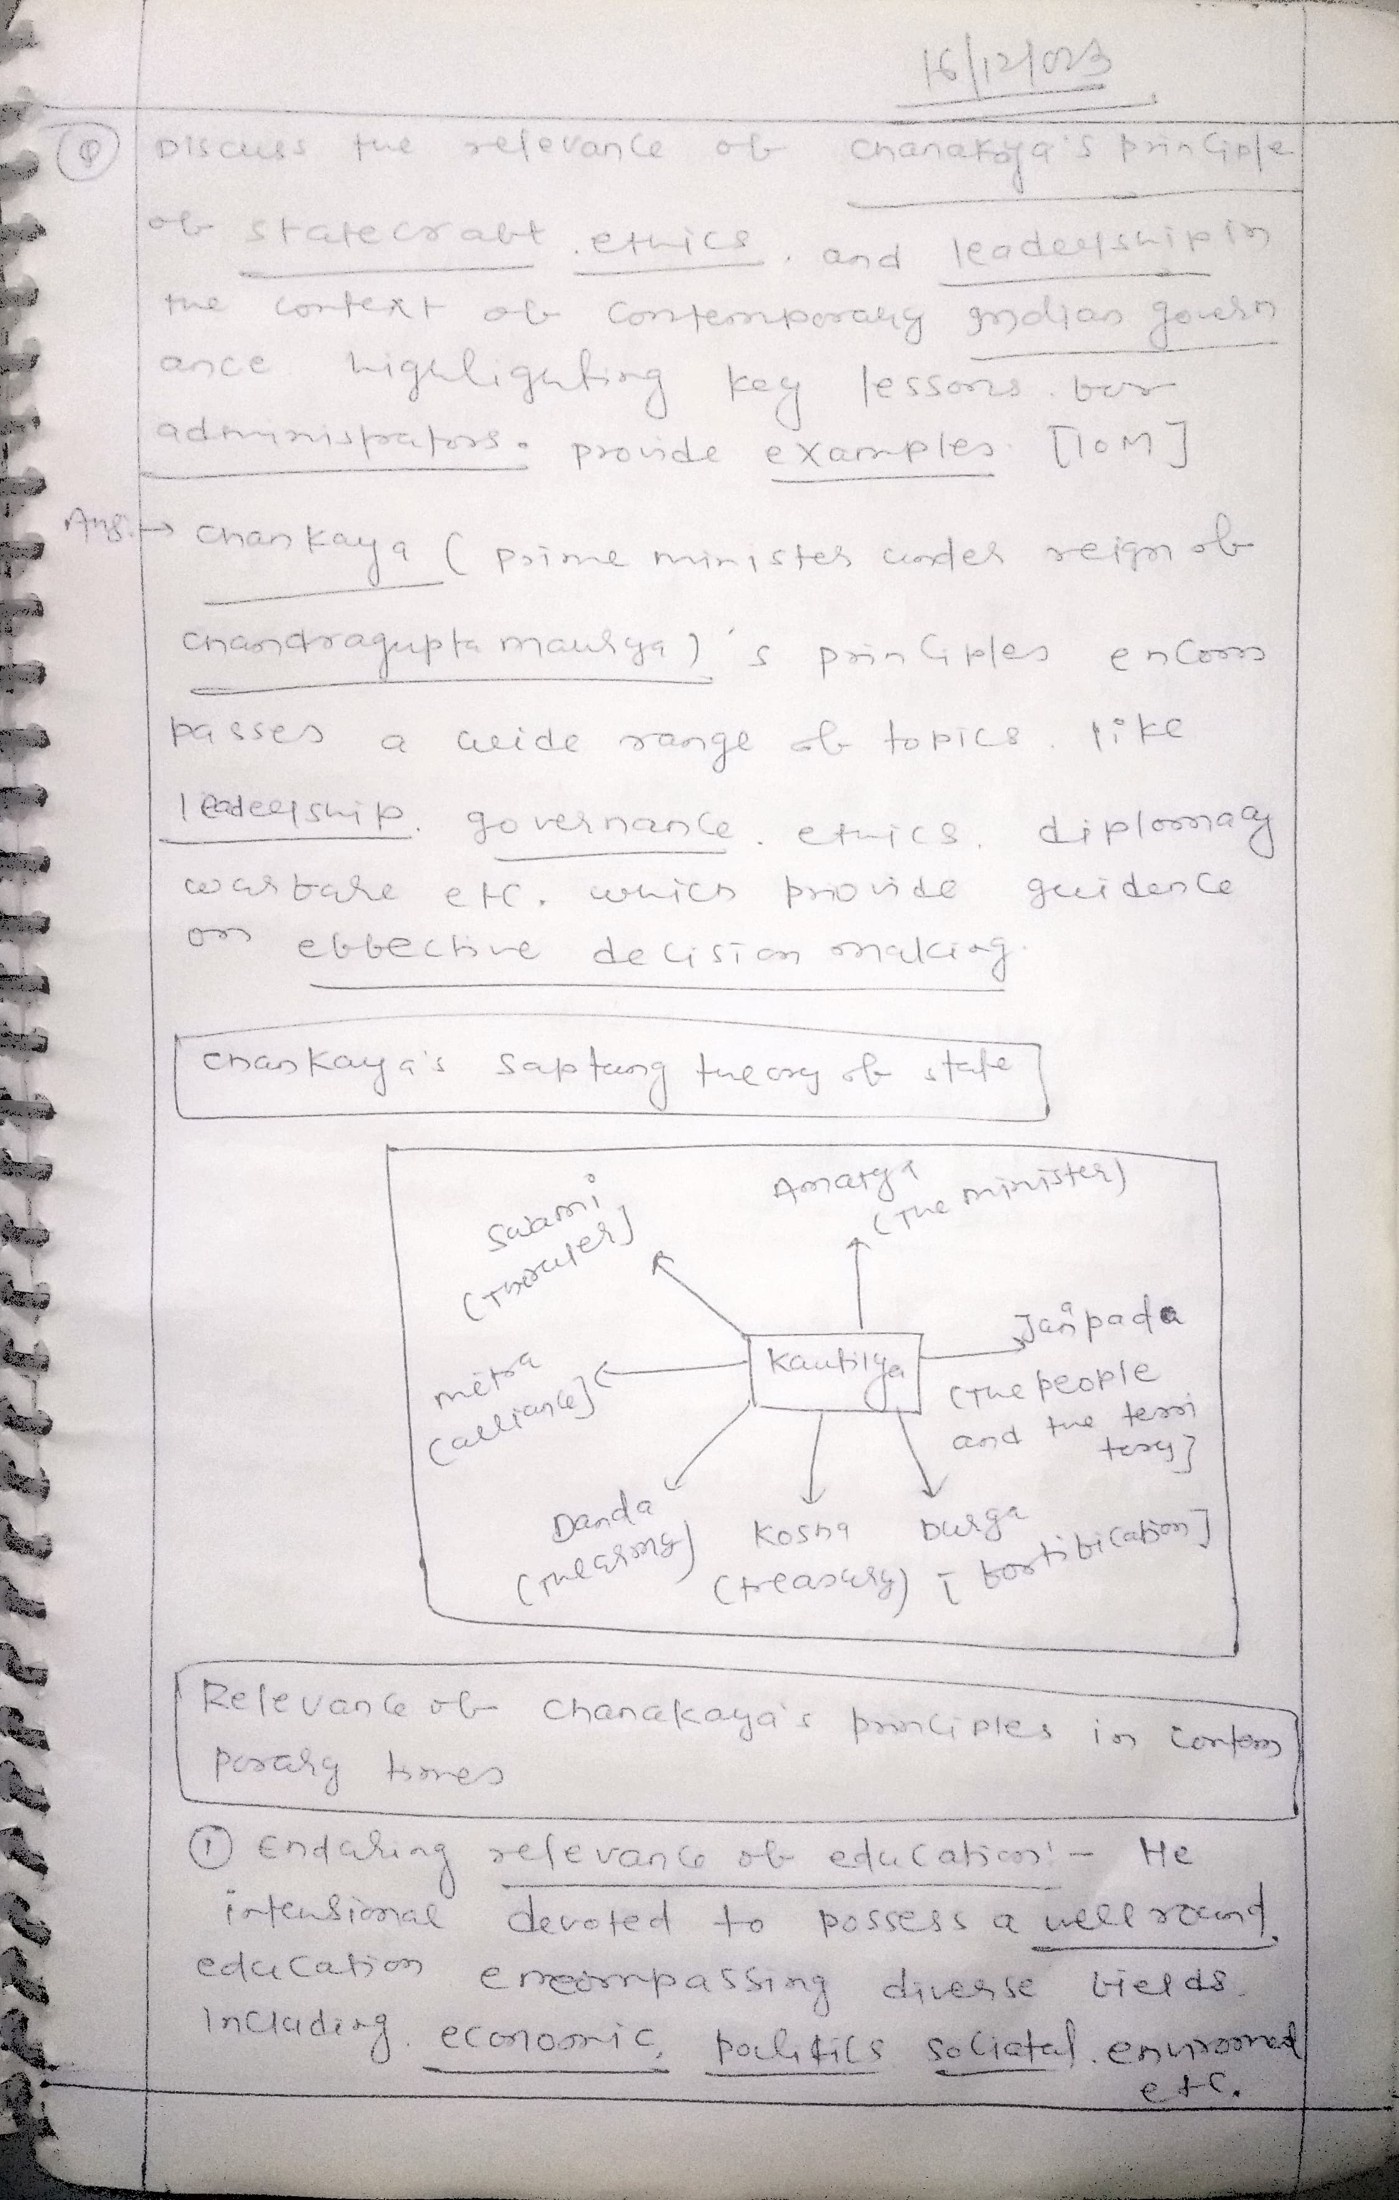 16/12/023
Q Discuss the relevance of Chanakya's principle
of statecraft, ethics, and leadership in
the context of contemporary Indian govern
ance highlighting key lessons for
administrators. provide examples. [10M]
Ans. → Chankaya (prime minister under reign of
Chandragupta maurya)'s principles encom
passes a wide range of topics. like
leadership, governance, ethics, diplomacy
warfare etc. which provide guidence
on effective decision making.
Chankaya's Saptang theory of state
Swami
(The ruler]
Amatya
(The minister)
Janpada
(The people
and the terri
tory]
Kautilya
mitra
(alliance]
Danda
(The army)
Kosha
(treasury)
Durga
[fortification]
Relevance of Chanakaya's principles in contem
porary times
① Enduring relevance of education:- He
intensional devoted to possess a well round
education encompassing diverse fields.
Including. economic, politics societal, enviroment
etc.